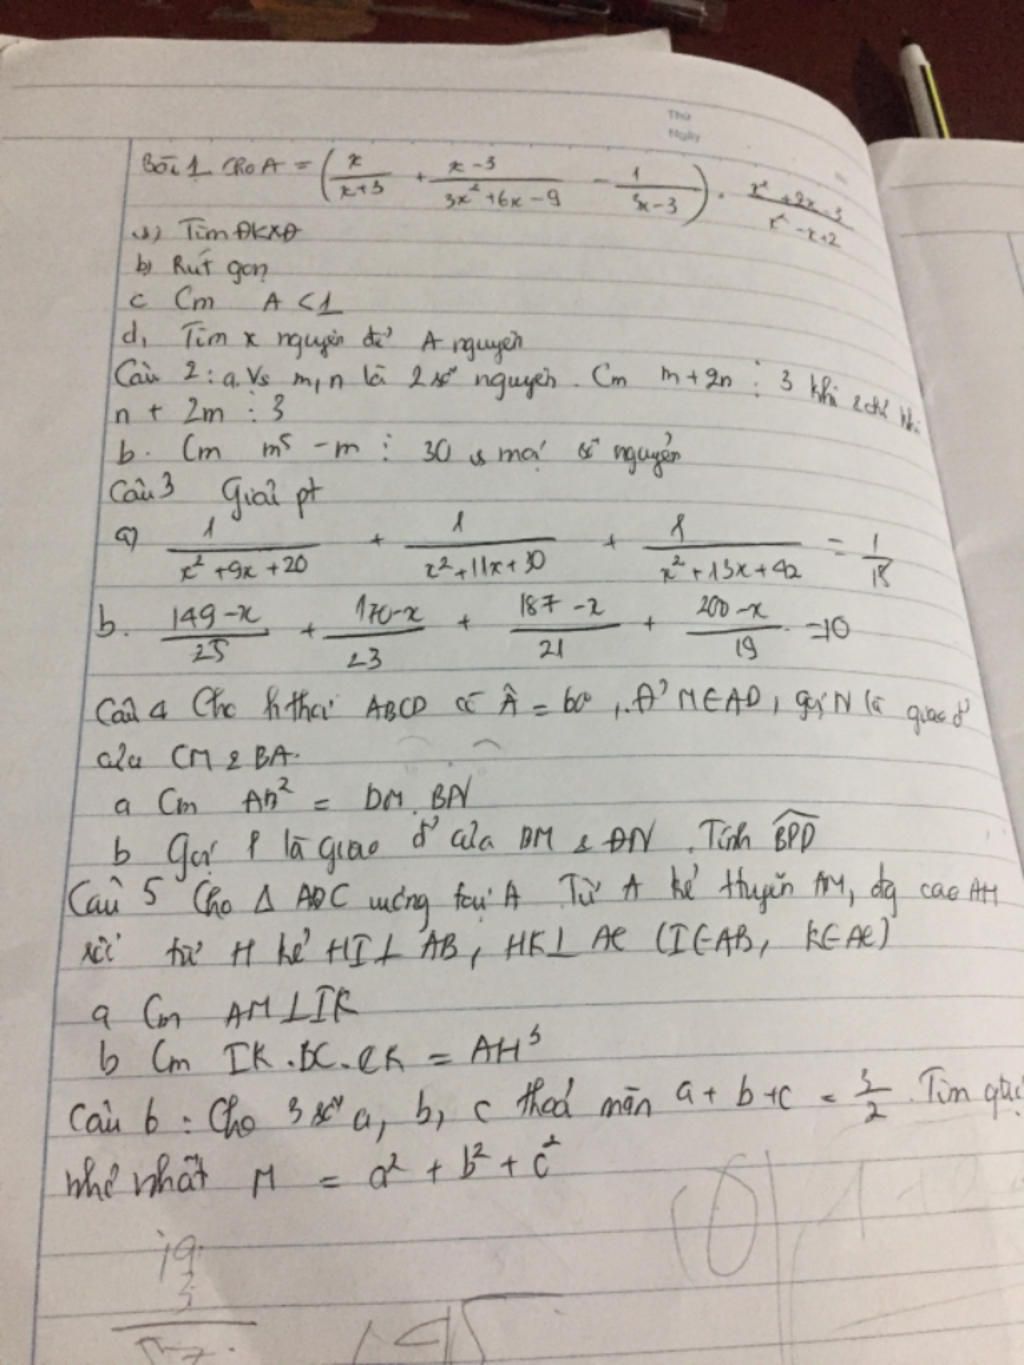 Thứ
Ngày
Bài 1 Cho A = (x/(x+3) + (x-3)/(3x²+6x-9) - 1/(3x-3)) . (x²+2x-3)/(x²-x+2)
a) Tìm ĐKXĐ
b) Rút gọn
c Cm A < 1
d, Tìm x nguyên để A nguyên
Câu 2: a. Vs m, n là 2 số nguyên. Cm m+2n ⋮ 3 khi & chỉ khi
n + 2m ⋮ 3
b. Cm m⁵ - m ⋮ 30 vs mọi số nguyên
Câu 3 Giải pt
a) 1/(x²+9x+20) + 1/(x²+11x+30) + 1/(x²+13x+42) = 1/18
b. (149-x)/25 + (170-x)/23 + (187-x)/21 + (200-x)/19 = 10
Câu 4 Cho h thoi ABCD có Â = 60°, M ∈ AD, gọi N là giao đ'
của CM & BA.
a Cm AD² = DM. BN
b Gọi P là giao đ' của BM & DN. Tính BPD
Câu 5 Cho Δ ABC vuông tại A Từ A kẻ tuyến AM, đg cao AH
từ H kẻ HI⊥AB, HK⊥AC (I∈AB, K∈AC)
a Cm AM⊥IK
b Cm IK.BC.CK = AH³
Câu 6: Cho 3 số a, b, c thoả mãn a + b + c = 3/2. Tìm giá
nhỏ nhất M = a² + b² + c²
19
3
57